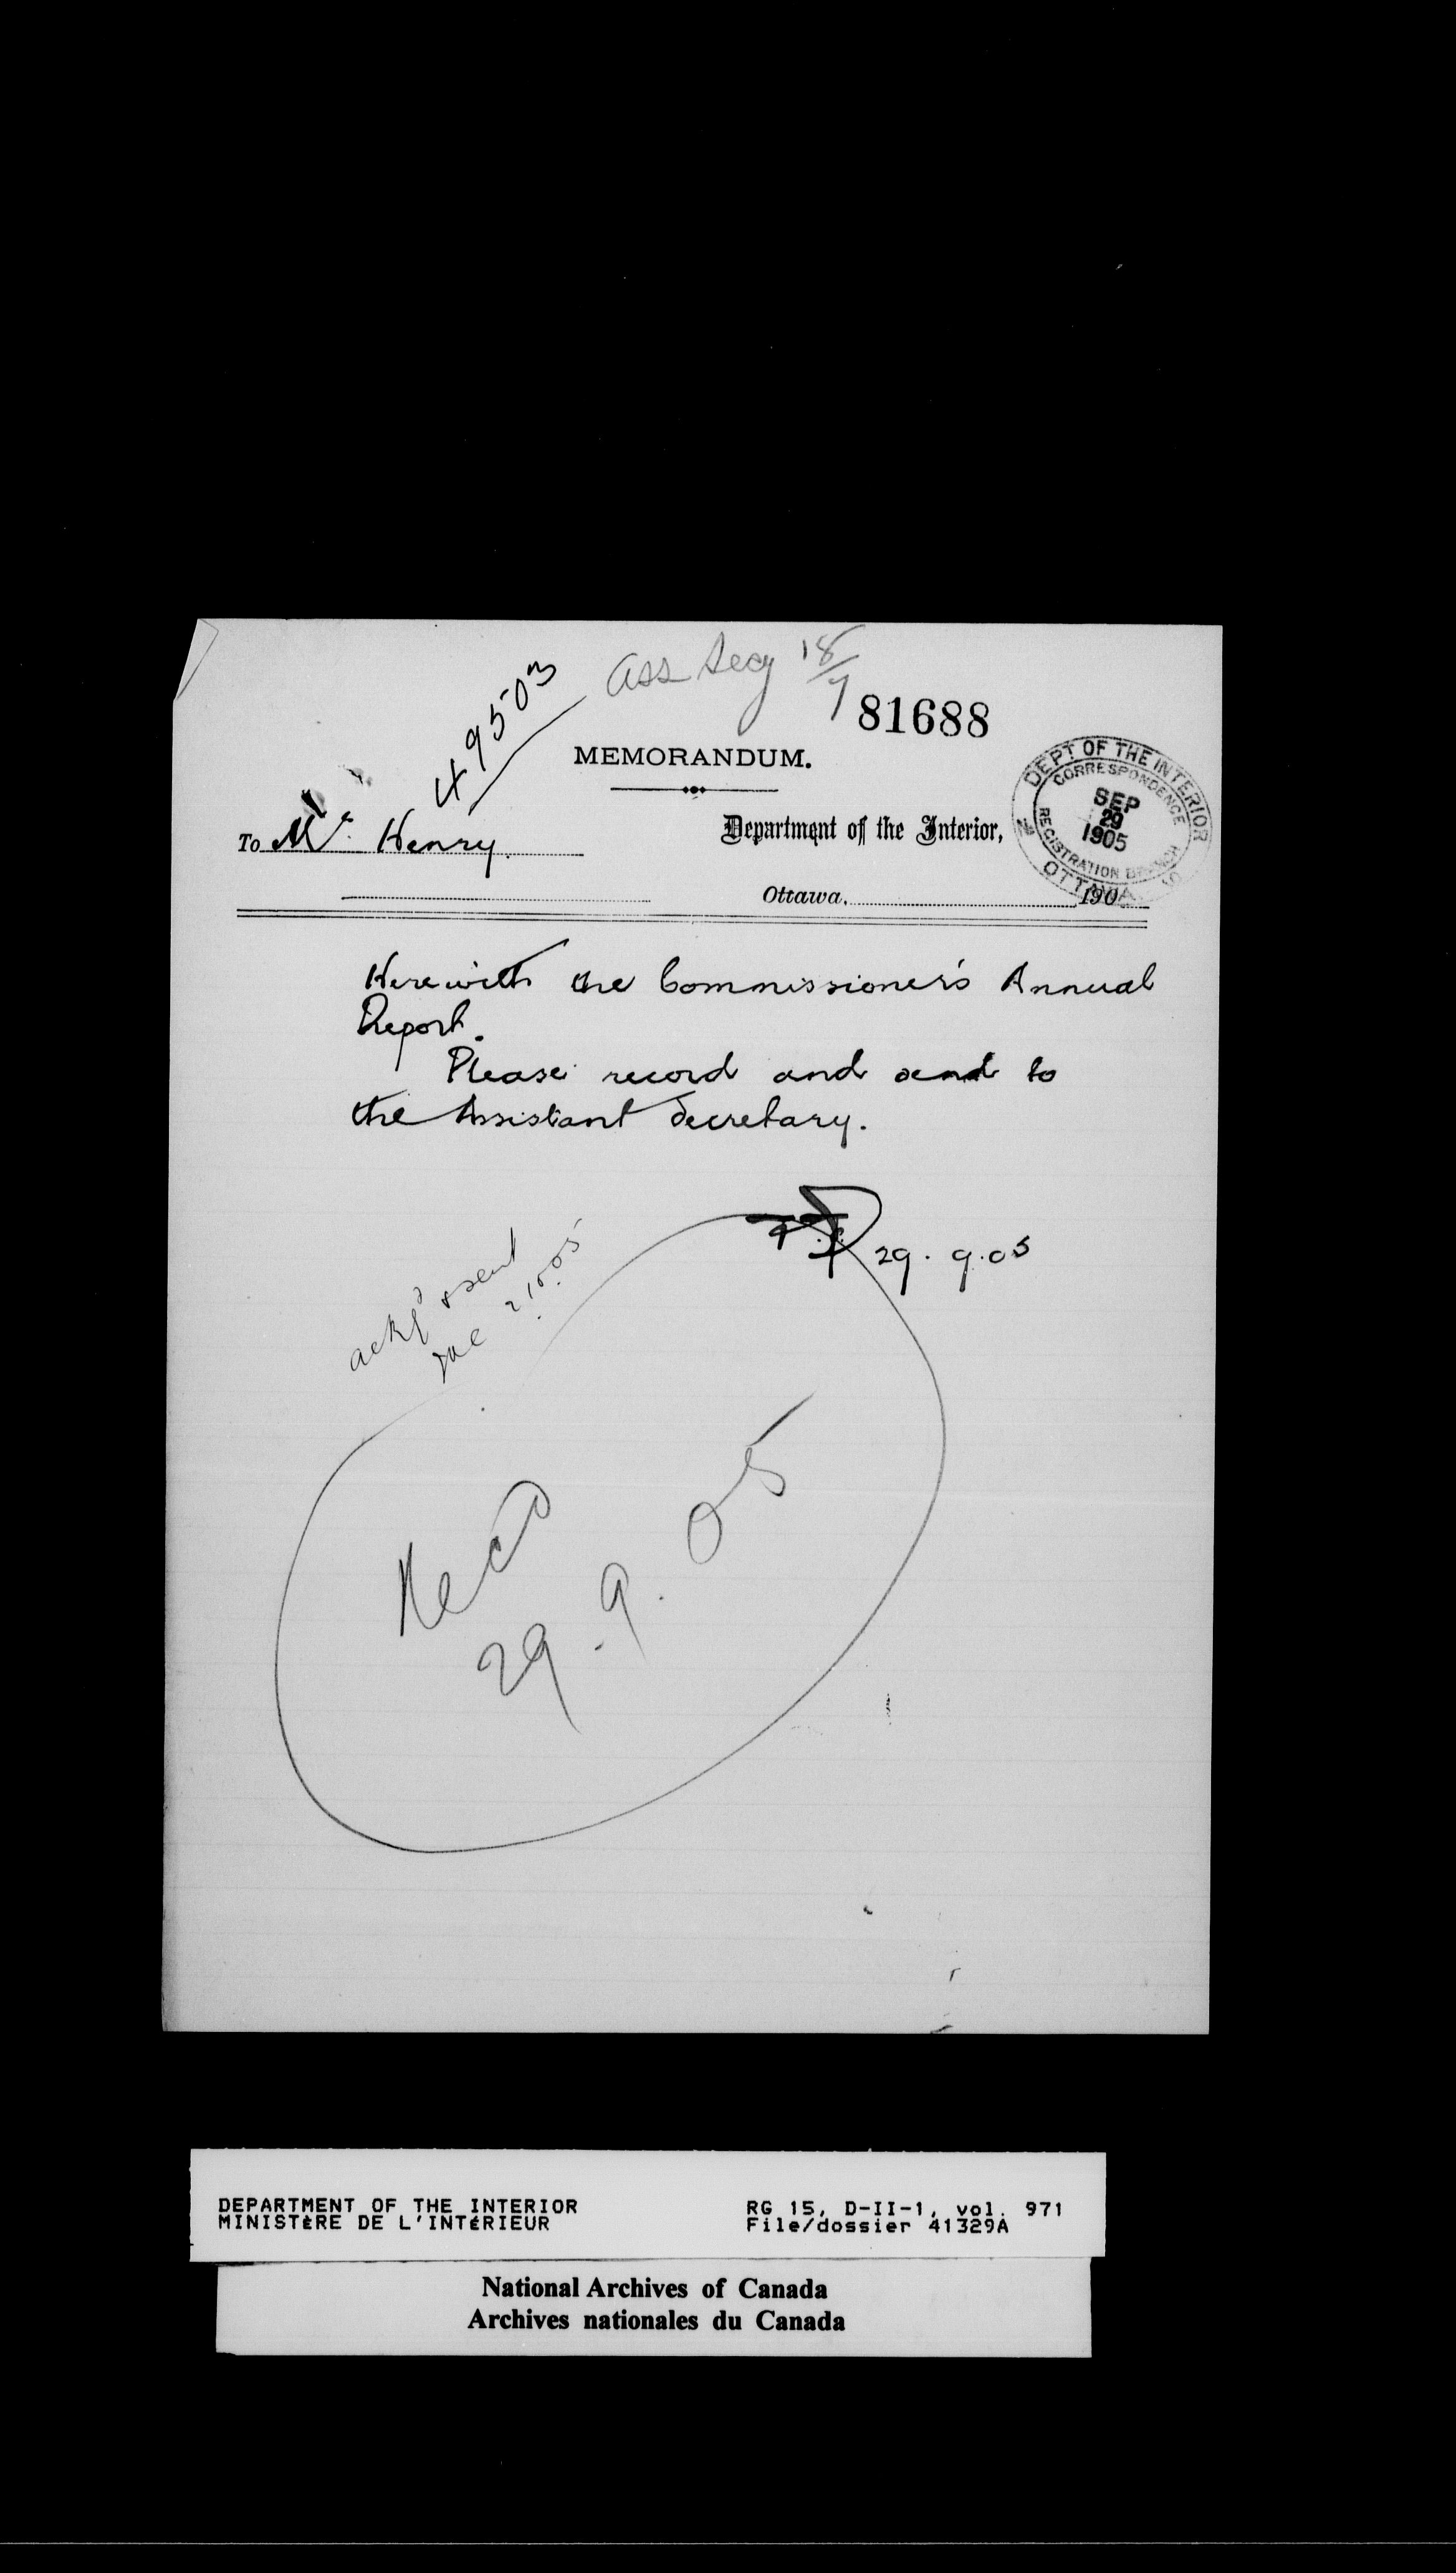 Ass Secy 18/7
49503
81688
MEMORANDUM.
To Mr. Henry.
Department of the Interior,
DEPT OF THE INTERIOR
CORRESPONDENCE
SEP
29
1905
REGISTRATION BRANCH
OTTAWA
Ottawa, 190
Herewith the Commissioner's Annual
Report.
Please record and send to
the Assistant Secretary.
29.9.05
ackd & sent
2.10.05
Recd
29.9.05
DEPARTMENT OF THE INTERIOR
MINISTÈRE DE L'INTÉRIEUR
RG 15, D-II-1, vol. 971
File/dossier 41329A
National Archives of Canada
Archives nationales du Canada